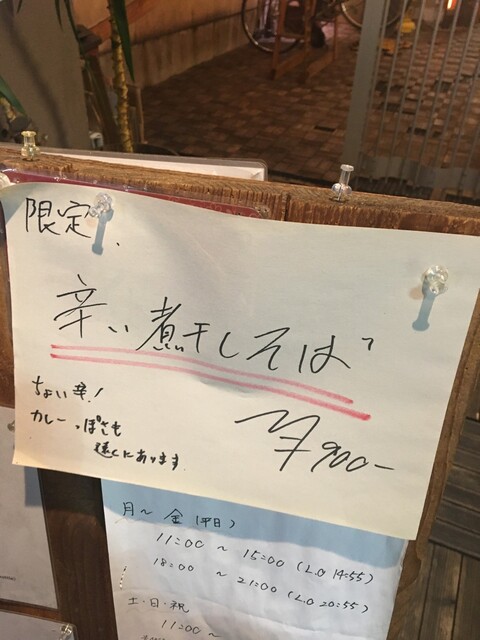 限定
辛い煮干しそば
¥900-
ちょい辛!
カレーっぽさも
遠くにあります
月〜金(平日)
11:00 〜 15:00 (L.O 14:55)
18:00 〜 21:00 (L.O 20:55)
土・日・祝
11:00 〜